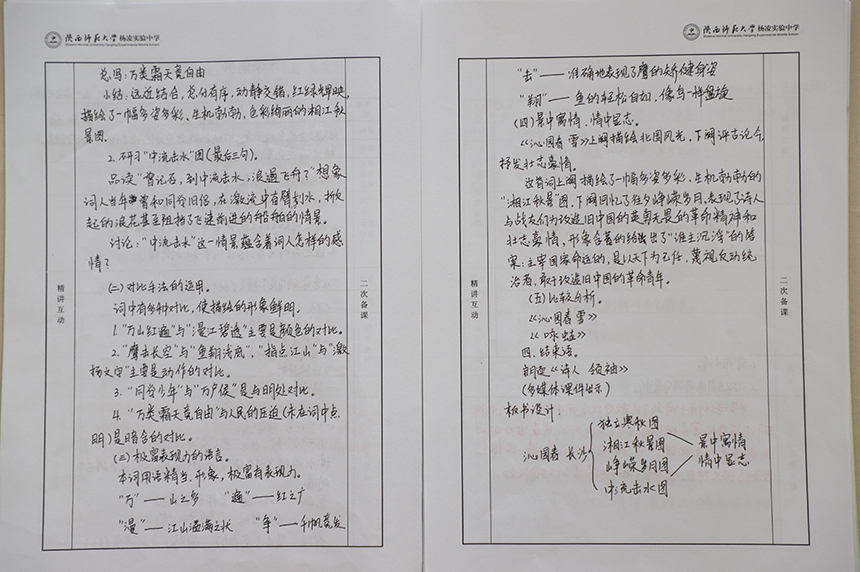 陕西师范大学杨凌实验中学
Shaanxi Normal University Yangling Experimental Middle School
总写：万类霜天竞自由
小结：远近结合，总分有序，动静交错，红绿辉映，
描绘了一幅多姿多彩、生机勃勃、色彩绚丽的湘江秋
景图。
2. 研习“中流击水”图（最后三句）。
品读“曾记否，到中流击水，浪遏飞舟？”想象
词人当年曾和同学旧侣，在激流中奋臂划水，掀
起的浪花甚至阻挡了飞速前进的船舶的情景。
讨论：“中流击水”这一情景蕴含着词人怎样的感
情？
（二）对比手法的运用。
词中有多种对比，使描绘的形象鲜明。
1. “万山红遍”与“漫江碧透”主要是颜色的对比。
2. “鹰击长空”与“鱼翔浅底”，“指点江山”与“激
扬文字”主要是动作的对比。
3. “同学少年”与“万户侯”是与明处对比。
4. “万类霜天竞自由”与人民的压迫（未在词中点
明）是暗含的对比。
（三）极富表现力的语言。
本词用语精当、形象，极富有表现力。
“万”——山之多 “遍”——红之广
“漫”——江山溢满之状 “争”——千帆竞发
精讲互动
二次备课
陕西师范大学杨凌实验中学
Shaanxi Normal University Yangling Experimental Middle School
“击”——准确地表现了鹰的矫健身姿
“翔”——鱼的轻松自如，像鸟一样盘旋
（四）景中寓情、情中显志。
《沁园春 雪》上阕描绘北国风光，下阕评古论今
抒发壮志豪情。
这首词上阕描绘了一幅多姿多彩、生机勃勃的
“湘江秋景”图，下阕回忆了往夕峥嵘岁月，表现了诗人
与战友们为改造旧中国的英勇无畏的革命精神和
壮志豪情，形象含蓄的给出了“谁主沉浮”的答
案：主宰国家命运的，是以天下为己任，蔑视反动统
治者，敢于改造旧中国的革命青年。
（五）比较分析。
《沁园春 雪》
《咏蛙》
四、结束语。
朗读《诗人 领袖》
（多媒体课件出示）
板书设计：
沁园春 长沙
独立寒秋图
湘江秋景图
峥嵘岁月图
中流击水图
景中寓情
情中显志
精讲互动
二次备课